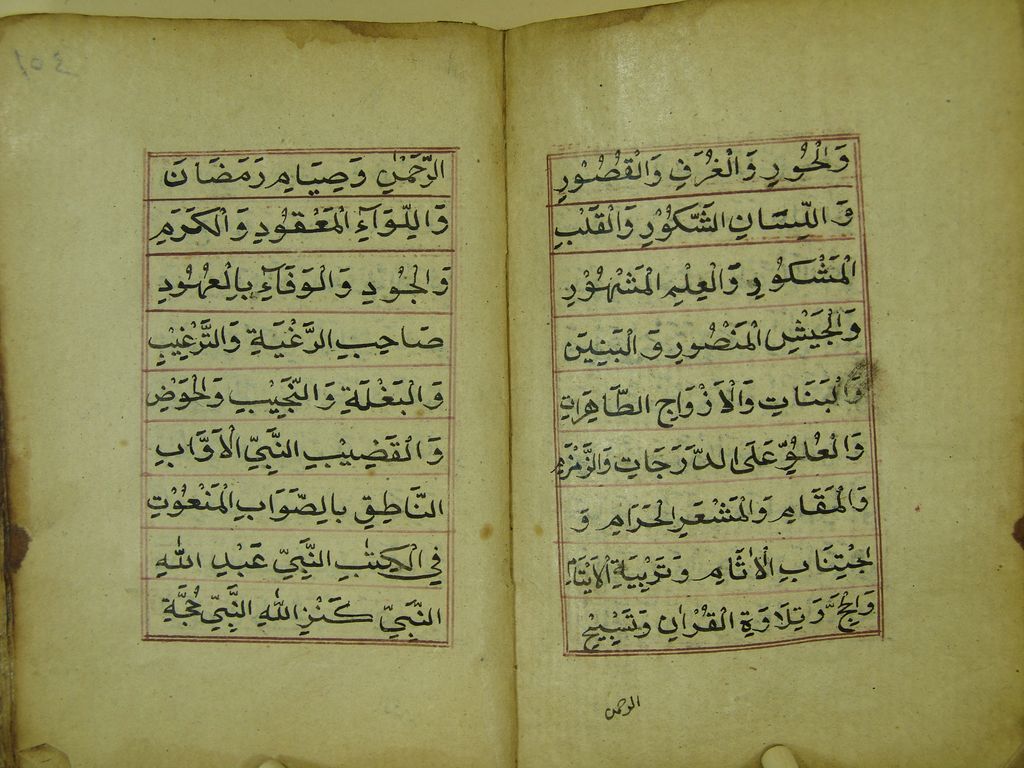 وَالْحُورِ وَالْغُرَفِ وَالْقُصُورِ
وَاللِّسَانِ الشَّكُوْرِ وَالْقَلْبِ
الْمَشْكُورِ وَالْعِلْمِ الْمَشْهُوْرِ
وَالْجَيْشِ الْمَنْصُورِ وَالْبَنِيْنَ
وَالْبَنَاتِ وَالْاَزْوَاجِ الطَّاهِرَاتِ
وَالْعُلُوِّ عَلَى الدَّرَجَاتِ وَالزَّمْزَمِ
وَالْمَقَامِ وَالْمَشْعَرِ الْحَرَامِ وَ
اجْتِنَابِ الْاٰثَامِ وَتَرْبِيَةِ الْاَيْتَامِ
وَالْحَجِّ وَتِلَاوَةِ الْقُرْاٰنِ وَتَسْبِيْحِ
الرحمن
١٥٤
الرَّحْمٰنِ وَصِيَامِ رَمَضَانَ
وَاللِّوَآءِ الْمَعْقُودِ وَالْكَرَمِ
وَالْجُودِ وَالْوَفَآءِ بِالْعُهُودِ
صَاحِبِ الرَّغْبَةِ وَالتَّرْغِيْبِ
وَالْبَغْلَةِ وَالنَّجِيْبِ وَالْحَوْضِ
وَالْقَضِيْبِ النَّبِيِّ الْاَوَّابِ
النَّاطِقِ بِالصَّوَابِ الْمَنْعُوْتِ
فِي الْكِتٰبِ النَّبِيِّ عَبْدِ اللّٰهِ
النَّبِيِّ كَنْزِ اللّٰهِ النَّبِيِّ حُجَّةِ